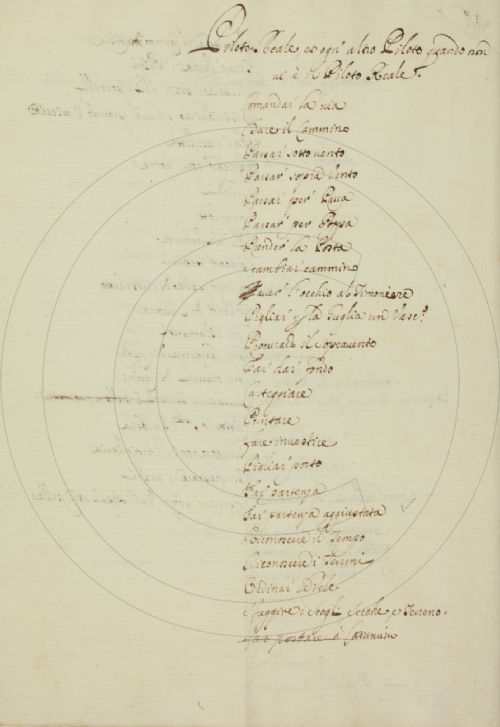 Piloto Reale, et ogn' altro Piloto quando non
vi è il Piloto Reale.
Comandar la via
Dare il Cammino
Passar sotto vento
Passar sopra Vento
Passar per Prua
Passar per Poppa
Prender la Posta
Scambiar cammino
Haver l'occhio al Timoniere
Pigliar la Guglia un Vasc.º
Procurare il Sopravento
Far dar fondo
Carteggiare
Puntare
fare investire
Pigliar porto
Far partenza
Far partenza aggiustata
Conoscere il Tempo
Riconoscere i Terreni
Ordinar le Vele
Sfuggire i Scogli Secche, e Terreno.
portare Cammin